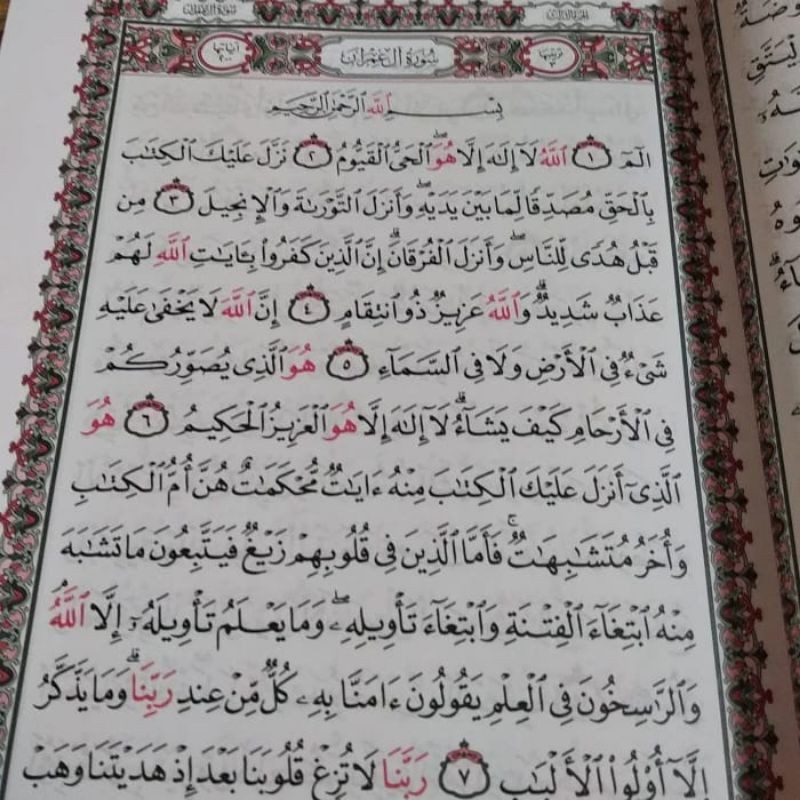 سورة آل عمران
آياتها ٢٠٠
سُورَةُ آلِ عِمْرَانَ
بِسْمِ اللَّهِ الرَّحْمَٰنِ الرَّحِيمِ
الٓمٓ ١ ٱللَّهُ لَآ إِلَٰهَ إِلَّا هُوَ ٱلْحَىُّ ٱلْقَيُّومُ ٢ نَزَّلَ عَلَيْكَ ٱلْكِتَٰبَ
بِٱلْحَقِّ مُصَدِّقًا لِّمَا بَيْنَ يَدَيْهِ وَأَنزَلَ ٱلتَّوْرَىٰةَ وَٱلْإِنجِيلَ ٣ مِن
قَبْلُ هُدًى لِّلنَّاسِ وَأَنزَلَ ٱلْفُرْقَانَ إِنَّ ٱلَّذِينَ كَفَرُوا۟ بِـَٔايَٰتِ ٱللَّهِ لَهُمْ
عَذَابٌ شَدِيدٌ وَٱللَّهُ عَزِيزٌ ذُو ٱنتِقَامٍ ٤ إِنَّ ٱللَّهَ لَا يَخْفَىٰ عَلَيْهِ
شَىْءٌ فِى ٱلْأَرْضِ وَلَا فِى ٱلسَّمَآءِ ٥ هُوَ ٱلَّذِى يُصَوِّرُكُمْ
فِى ٱلْأَرْحَامِ كَيْفَ يَشَآءُ لَآ إِلَٰهَ إِلَّا هُوَ ٱلْعَزِيزُ ٱلْحَكِيمُ ٦ هُوَ
ٱلَّذِىٓ أَنزَلَ عَلَيْكَ ٱلْكِتَٰبَ مِنْهُ ءَايَٰتٌ مُّحْكَمَٰتٌ هُنَّ أُمُّ ٱلْكِتَٰبِ
وَأُخَرُ مُتَشَٰبِهَٰتٌ فَأَمَّا ٱلَّذِينَ فِى قُلُوبِهِمْ زَيْغٌ فَيَتَّبِعُونَ مَا تَشَٰبَهَ
مِنْهُ ٱبْتِغَآءَ ٱلْفِتْنَةِ وَٱبْتِغَآءَ تَأْوِيلِهِۦ وَمَا يَعْلَمُ تَأْوِيلَهُۥٓ إِلَّا ٱللَّهُ
وَٱلرَّٰسِخُونَ فِى ٱلْعِلْمِ يَقُولُونَ ءَامَنَّا بِهِۦ كُلٌّ مِّنْ عِندِ رَبِّنَا وَمَا يَذَّكَّرُ
إِلَّآ أُو۟لُوا۟ ٱلْأَلْبَٰبِ ٧ رَبَّنَا لَا تُزِغْ قُلُوبَنَا بَعْدَ إِذْ هَدَيْتَنَا وَهَبْ